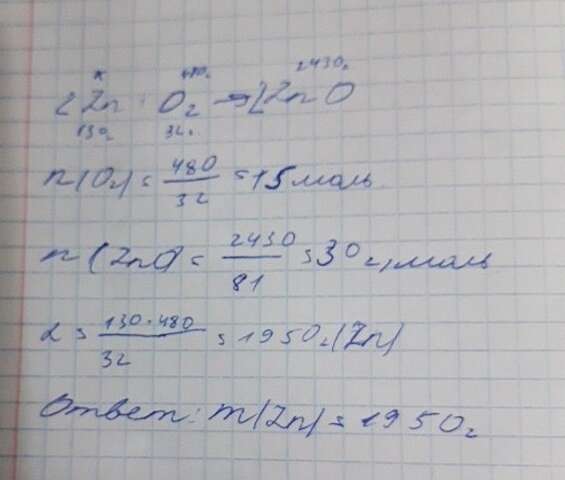 x 480г 2430г
2Zn + O₂ → 2ZnO
130г 32г
n(O₂) = 480/32 = 15 моль
n(ZnO) = 2430/81 = 30 г/моль
x = 130·480/32 = 1950г (Zn)
Ответ: m(Zn) = 1950г